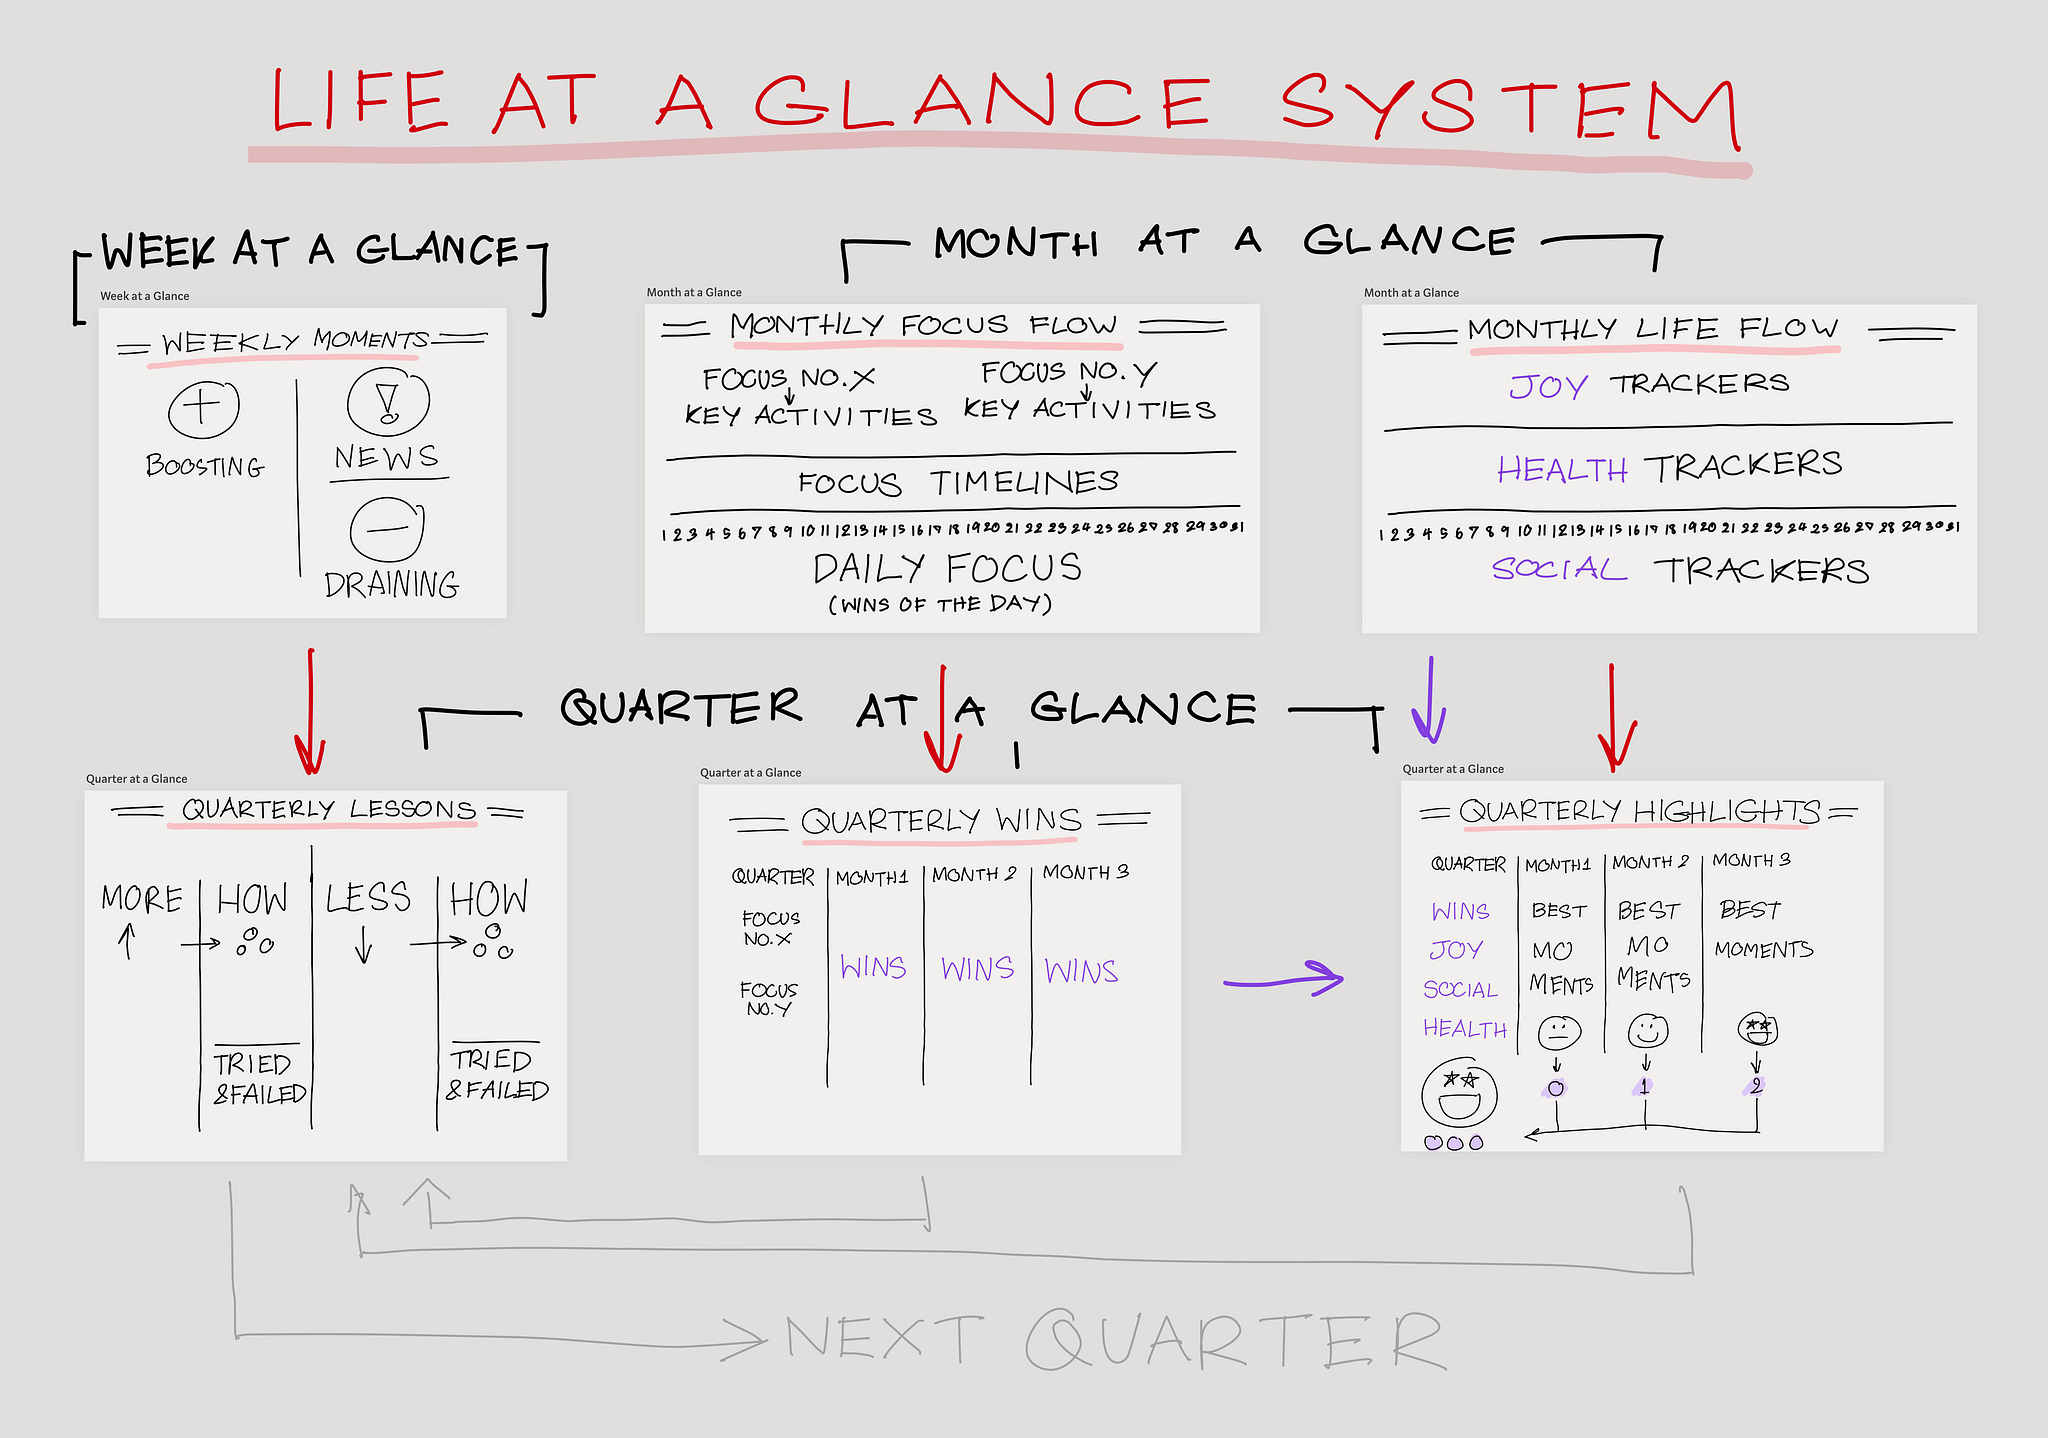 LIFE AT A GLANCE SYSTEM
WEEK AT A GLANCE
Week at a Glance
WEEKLY MOMENTS
+
BOOSTING
!
NEWS
−
DRAINING
MONTH AT A GLANCE
Month at a Glance
MONTHLY FOCUS FLOW
FOCUS NO. X
KEY ACTIVITIES
FOCUS NO. Y
KEY ACTIVITIES
FOCUS TIMELINES
1 2 3 4 5 6 7 8 9 10 11 12 13 14 15 16 17 18 19 20 21 22 23 24 25 26 27 28 29 30 31
DAILY FOCUS
(WINS OF THE DAY)
Month at a Glance
MONTHLY LIFE FLOW
JOY TRACKERS
HEALTH TRACKERS
1 2 3 4 5 6 7 8 9 10 11 12 13 14 15 16 17 18 19 20 21 22 23 24 25 26 27 28 29 30 31
SOCIAL TRACKERS
QUARTER AT A GLANCE
Quarter at a Glance
QUARTERLY LESSONS
MORE
HOW
TRIED
&FAILED
LESS
HOW
TRIED
&FAILED
Quarter at a Glance
QUARTERLY WINS
QUARTER MONTH1 MONTH 2 MONTH 3
FOCUS
NO.X
WINS WINS WINS
FOCUS
NO.Y
Quarter at a Glance
QUARTERLY HIGHLIGHTS
QUARTER MONTH1 MONTH 2 MONTH 3
WINS BEST BEST BEST
JOY MO MO MOMENTS
SOCIAL MENTS MENTS
HEALTH
0 1 2
NEXT QUARTER